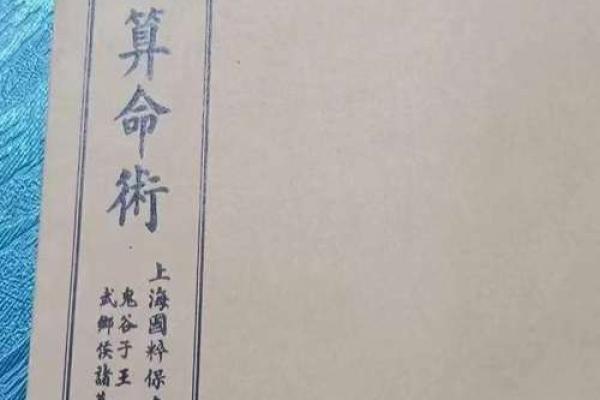 算命術
上海國粹保
鬼谷子王
武鄉侯諸